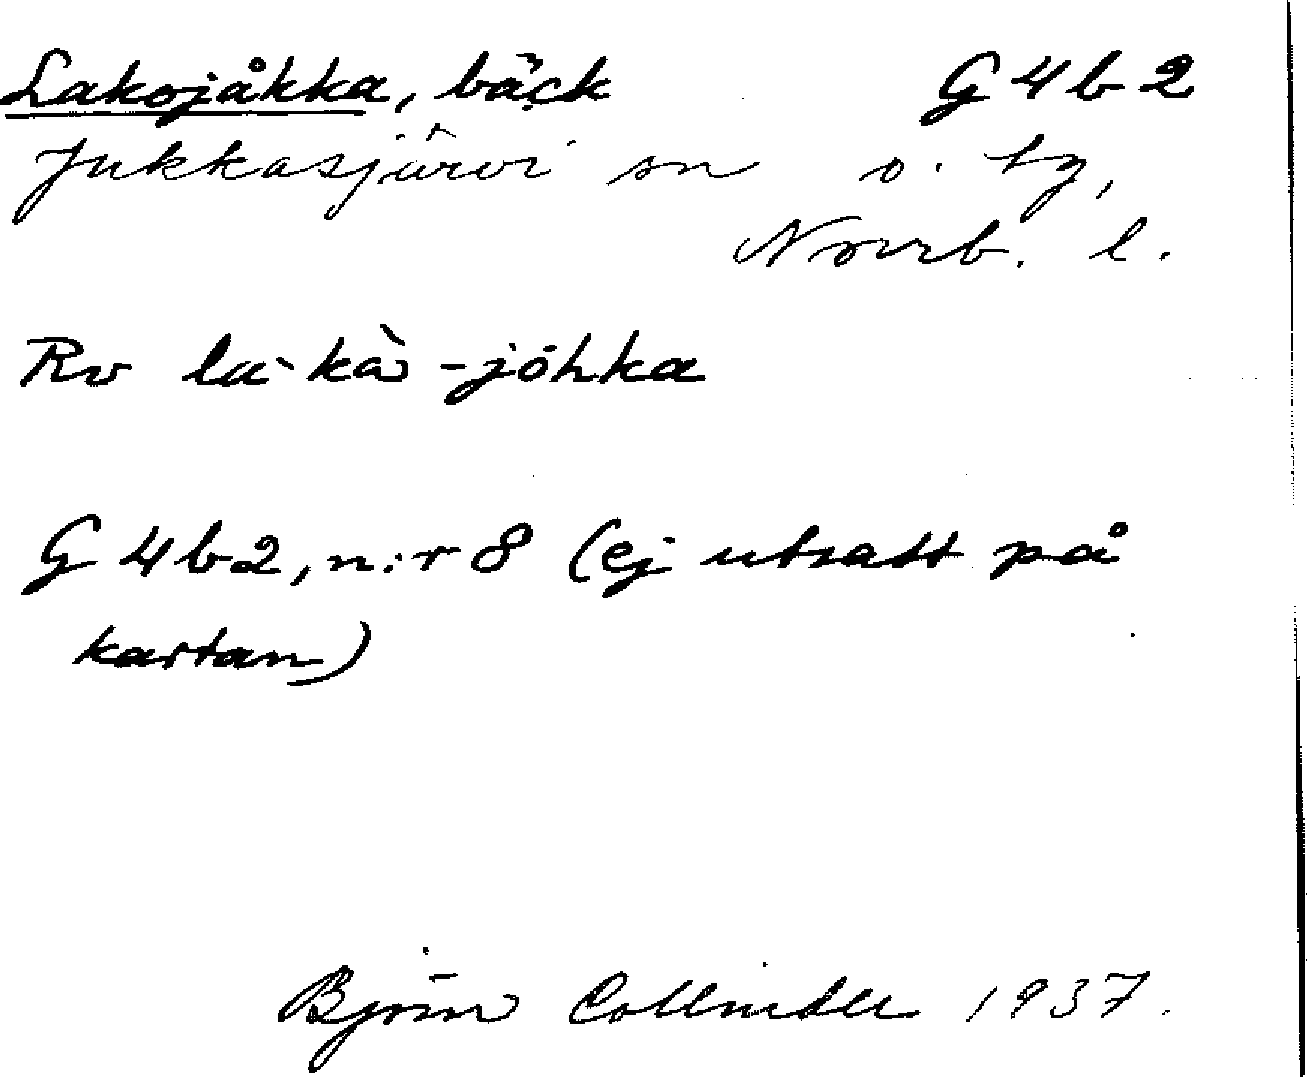 Lakojåkka, bäck G4b2
Jukkasjärvi sn o. tg,
Norrb. l.
Rv la·kà-jòhka
G4b2, n:r 8 (ej utsatt på
kartan)
Björn Collinder 1937.